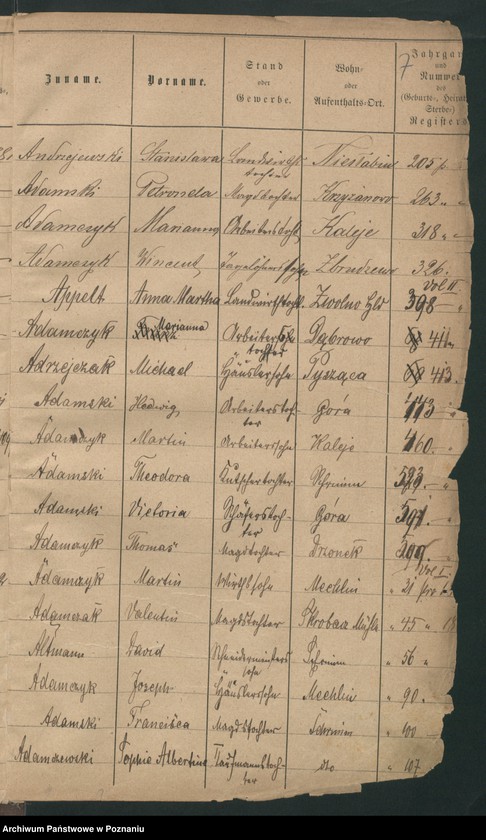 Zuname. Vorname. Stand oder Gewerbe. Wohn- oder Aufenthalts-Ort. Jahrgan und Numwer des (Geburts-, Heira Sterbe-) Registers
7
Andrzejewski Stanislava Landwirths tochter 205
Adamski Petronela Magdtochter Krzyżanowo 263. "
Adamczyk Marianna Arbeiterstocht Kaleje 318 " "
Adamczyk Vincent Tagelöhnerssohn 326.
Vol II
Appelt Anna Martha Landwirthstocht. Zwolno Hld 398 "
Adamczyk Marianna Arbeiters tochter Dąbrowo 411
Adrzejczak Michael Häuslersohn Pysząca 413.
Adamski Hedwig Arbeiterstoch- ter Góra 443 "
Adamczyk Martin Arbeiterssohn Haleje 460. "
Adamski Theodora Kutschertochter Schrimm 523. "
Adamski Victoria Schäferstoch- ter Góra 597. "
Adamczyk Thomas Magdtochter Drzonek 599 "
Vol I
Adamczyk Martin Wirthssohn Mechlin " 21 pro
Adamczak Valentin Magdstochter Skrobacz Mühle " 45 " 18
Altmann David Schneidermeisters sohn Schrimm " 56 "
Adamczyk Joseph Häuslerssohn Mechlin " 90. "
Adamski Francisca Magdstochter Schrimm " 100 "
Adamczewski Sophie Albertine Kaufmannstoch- ter dto " 107
Archiwum Państwowe w Poznaniu